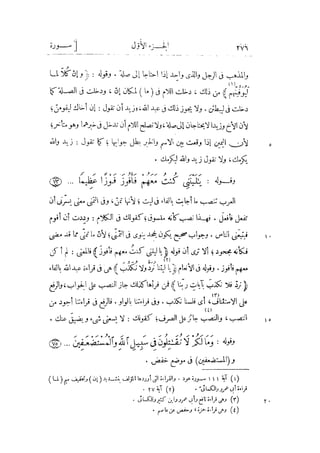 ٢٧٦ الجزء الأول [ سورة
والمذهب فى الرجل والذى واحد إذا احتاجا إلى صلة . وقوله : ﴿ وإنّ كلّا لما
ليوفّينّهم ﴾ (١) من ذلك ، دخلت اللام فى ( ما ) لمكان إنّ ، ودخلت فى الصلة كما
دخلت فى ليبطئن . ولا يجوز ذلك فى عبد الله ، وزيد أن تقول : إن أخاك ليقومنّ ؛
لأن الأخ وزيدا لا يحتاجان إلى صلة ، ولا تصلح اللام أن تدخل فى خبرهما وهو متأخر ؛
٥ لأن اليمين إذا وقعت بين الاسم والخبر بطل جوابها ؛ كما تقول : زيد والله
يكرمك ، ولا تقول زيد والله ليكرمك .
وقوله : يٰليتنى كنت معهم فأفوز فوزا عظيما ... ﴿٧٣﴾
العرب تنصب ما أجابت بالفاء فى ليت ؛ لأنها تمنّ ، وفى التمنى معنى يسرّنى أن
تفعل فأفعل . فهذا نصب كأنه منسوق ؛ كقولك فى الكلام : وددت أن أقوم
١٠ فيتبعنى الناس . وجواب صحيح يكون لجحد ينوى فى التمنّى ؛ لأن ما تمنّى مما قد مضى
فكأنه مجحود ؛ ألا ترى أن قوله ﴿ يا ليتنى كنت معهم فأفوز ﴾ فالمعنى : لم أكن
معهم فأفوز . وقوله فى الأنعام ﴿ يا ليتنا نردّ ولا نكذّب ﴾ (٢) هى فى قراءة عبد الله بالفاء
نردّ فلا نكذّب بآيات ربنا ﴾ فمن قرأها كذلك جاز النصب على الجواب ، والرفع
على الاستئناف ، أى فلسنا نكذب . وفى قراءتنا بالواو . فالرفع (٣) فى قراءتنا أجود من
١٥ النصب ، والنصب جائز على الصرف (٤) ؛ كقولك : لا يسعنى شىء ويضيقَ عنك .
وقوله : وما لكم لا تقٰتلون فى سبيل الله والمستضعفين ... ﴿٧٥﴾
و ( المستضعفين ) فى موضع خفض .
(١) آية ١١١ سورة هود . والقراءة التى أوردها المؤلف بتشديد ( إن ) وتخفيف ميم ( لما )
قراءة أبى عمرو والكسائى . (٢) آية ٢٧ .
٢٠ (٣) وهى قراءة نافع وأبى عمرو وابن كثير والكسائى .
(٤) وهى قراءة حمزة وحفص عن عاصم .